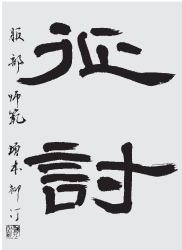 征討
服部 師範
坂本柳汀